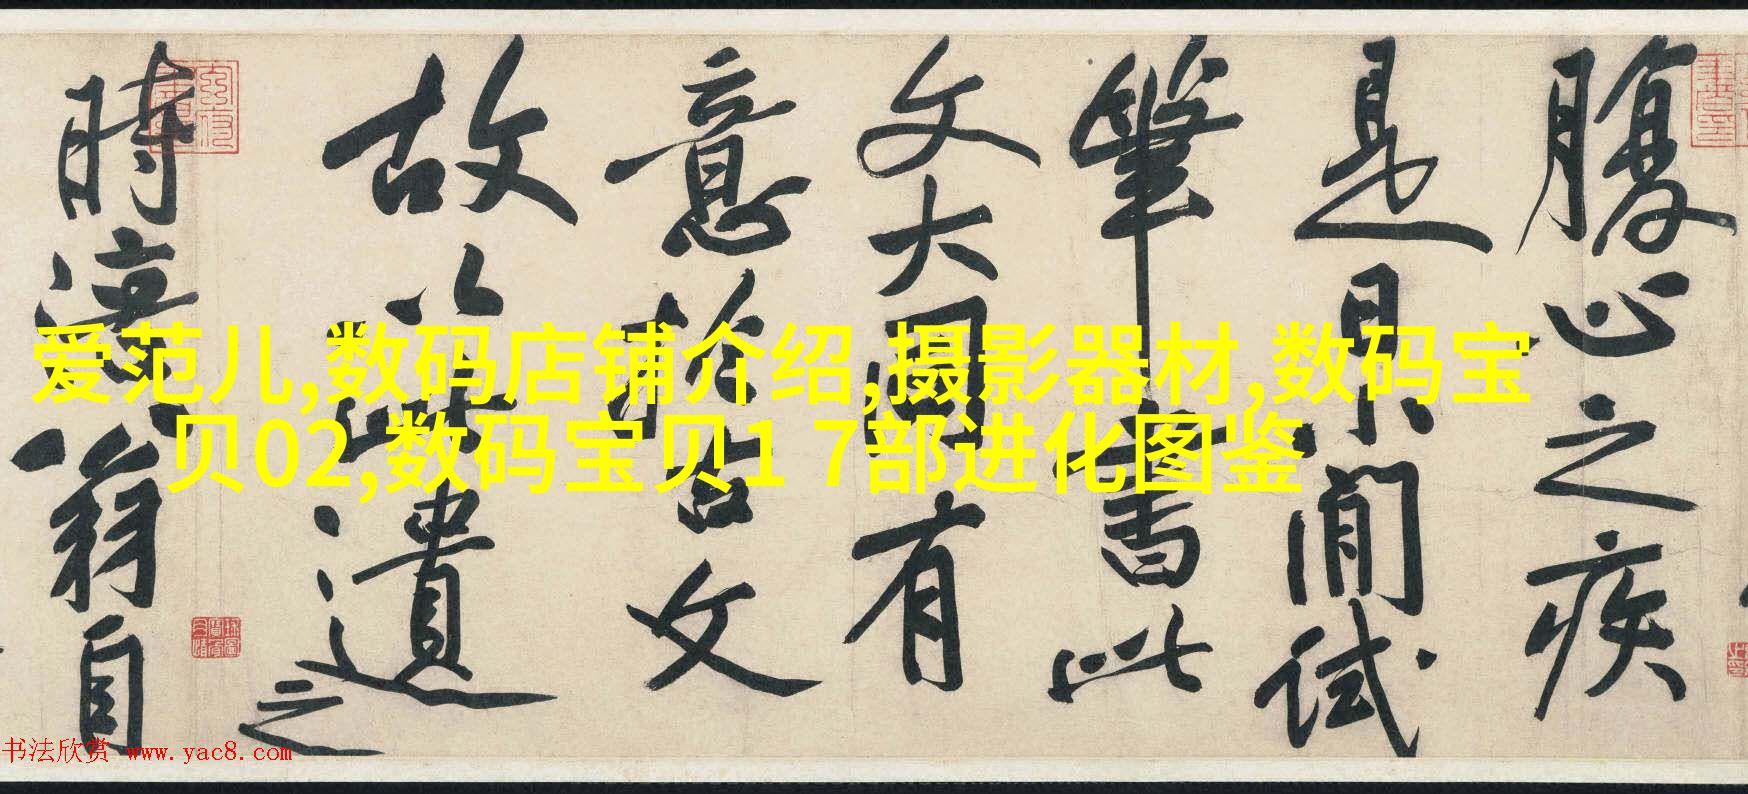 腹心之疾
是日小閒試
筆書此
文大同有
意於古文
故以此遺
之
時涪翁自
爱范儿,数码店铺介绍,摄影器材,数码宝
贝02,数码宝贝1 7部进化图鉴
书法欣赏 www.yac8.com